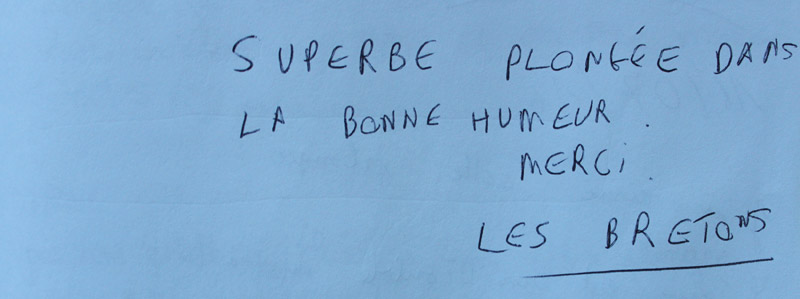 SUPERBE PLONGÉE DANS
LA BONNE HUMEUR.
MERCi.
LES BRETONS